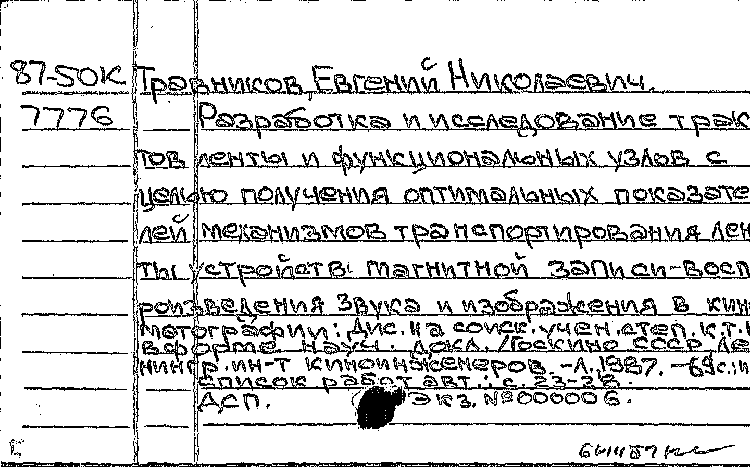 87-50К Травников, Евгений Николаевич.
7776 Разработка и исследование трак
тов ленты и функциональных узлов с
целью получения оптимальных показате
лей механизмов транспортирования лен
ты устройств магнитной записи-восп
роизведения звука и изображения в кин
матографии: Дис. на соиск. учен. степ. к.т.н
в форме науч. докл. /Госкино СССР Ле
нингр. ин-т киноинженеров. -Л., 1987. -69с.: и
Список работ авт.: с. 23-28.
ДСП. Экз. №000006.